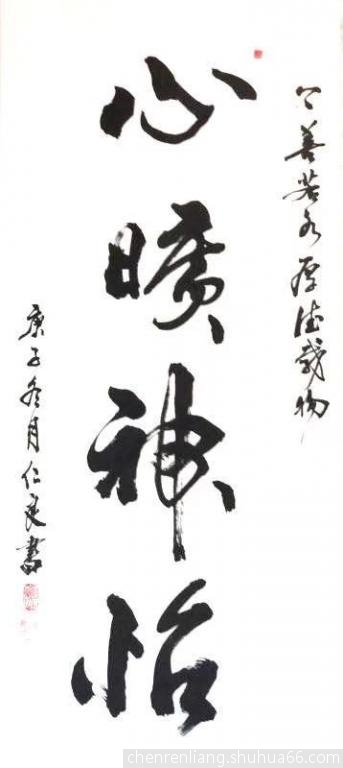 上善若水厚德载物
心曠神怡
庚子冬月仁良書
chenrenliang.shuhua66.com